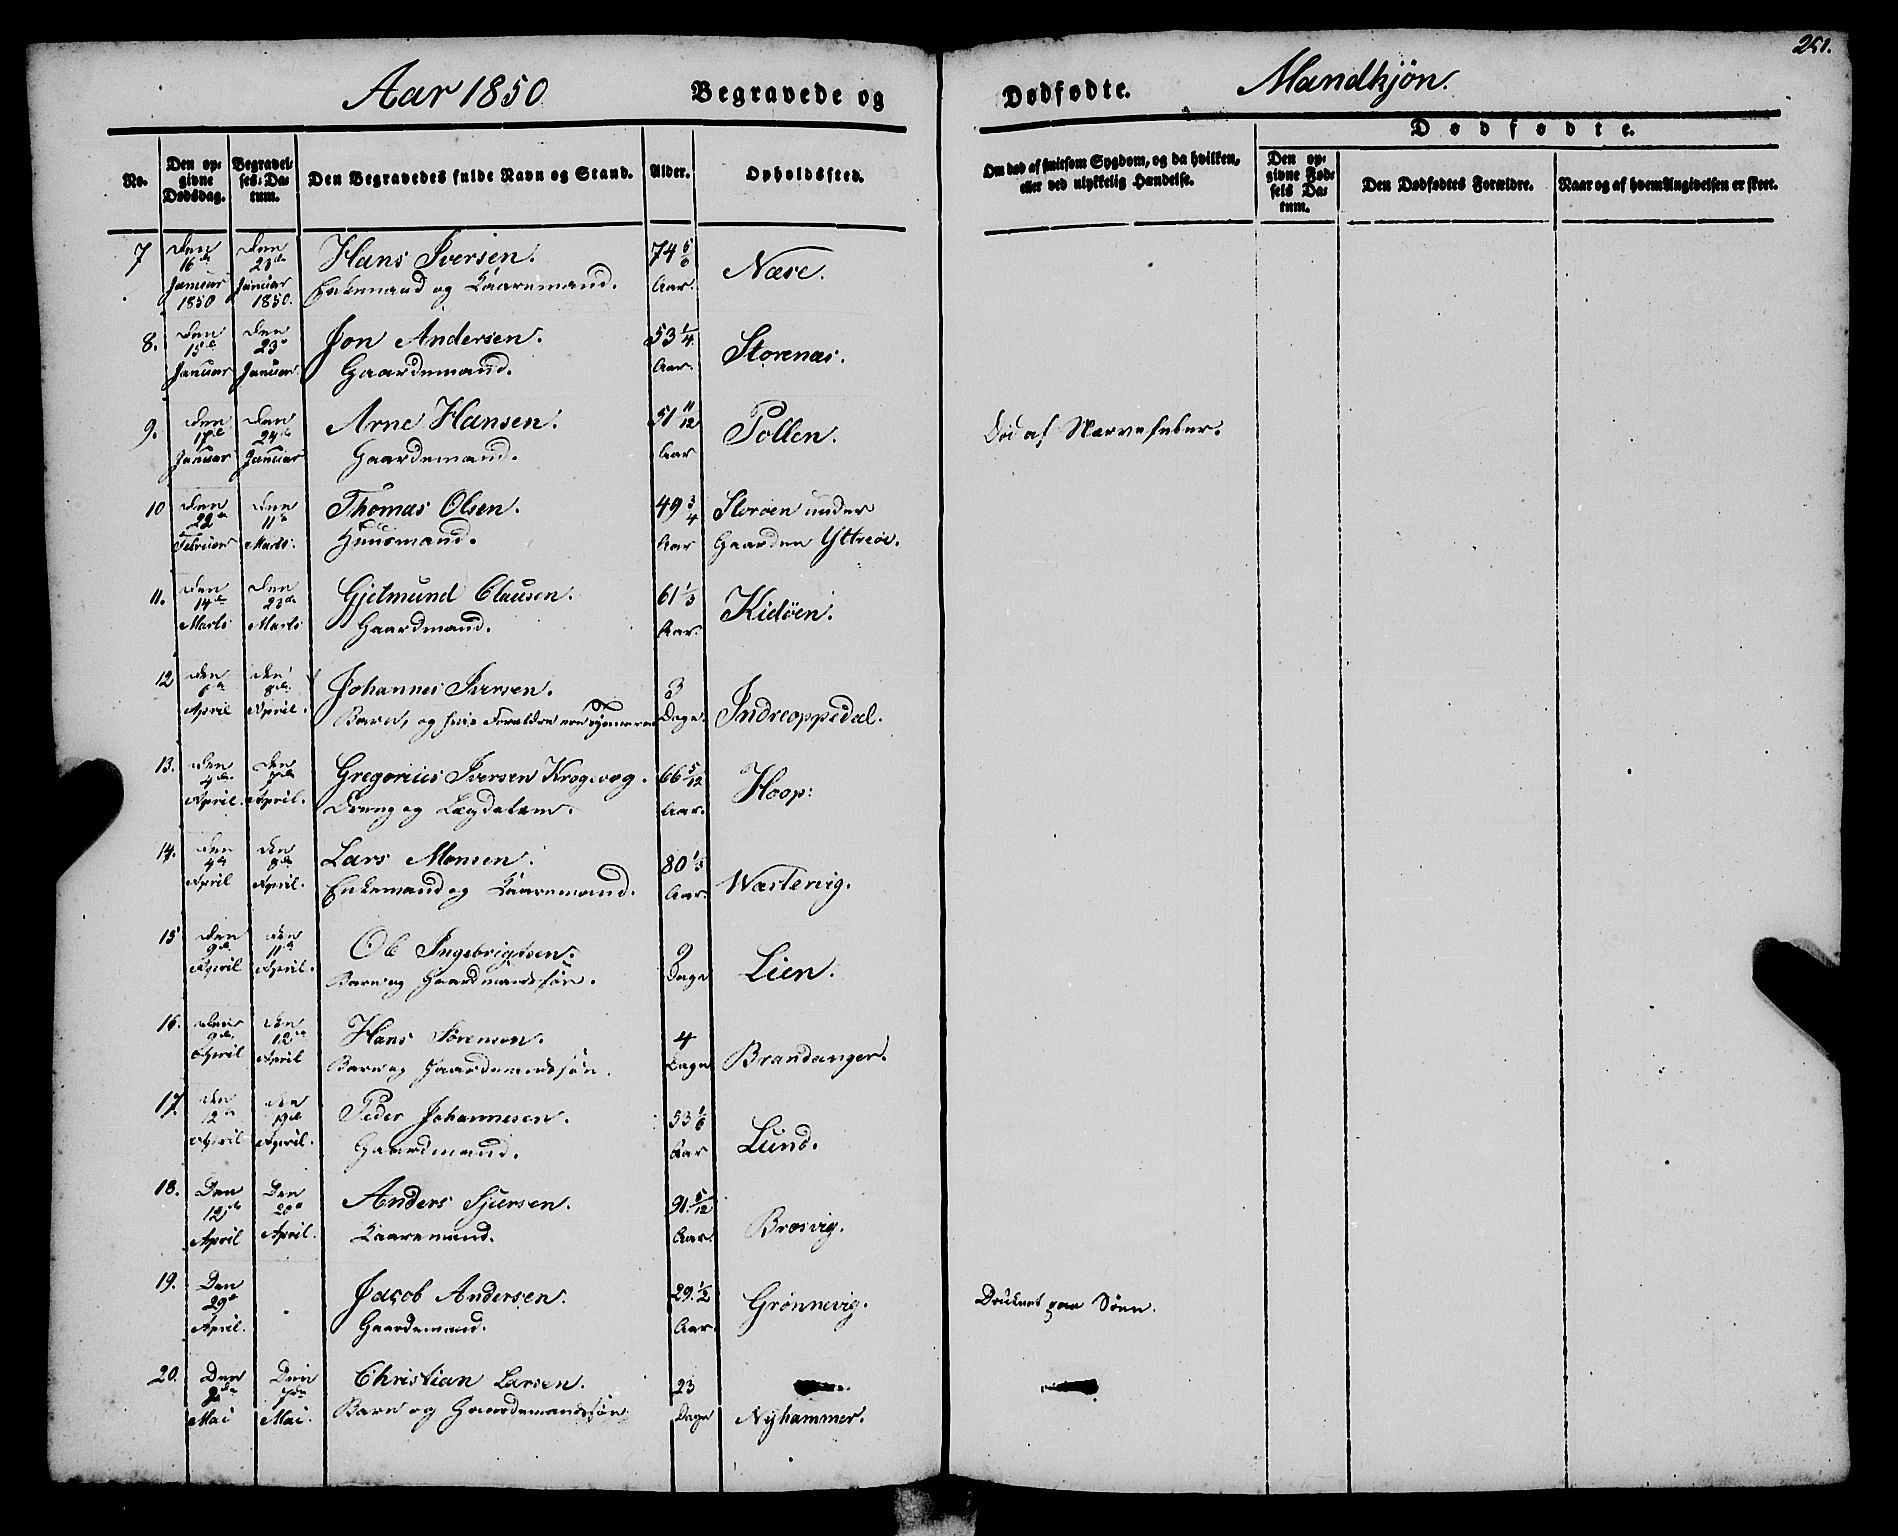 251.
Aar 1850 Begravede og Dødfødte. Mandkjön.
No. Den opgivne Dødsdag. Begravelses-Datum. Den Begravedes fulde Navn og Stand. Alder. Opholdssted. Om død af smitsom Sygdom, og da hvilken, eller ved ulykkelig Hændelse. Dødfødte.
Den opgivne Fødsels Datum. Den Dødfødtes Forældre. Naar og af hvem Angivelsen er skeet.
7 Den 16de Januar 1850 Den 23de Januar 1850. Hans Iversen. 74 5/6 Aar. Næse.
Enkemand og Kaaremand.
8. Den 15de Januar Den 23de Januar Jon Andersen. 53 1/4 Aar. Storenæs.
Gaardemand.
9. Den 17de Januar Den 24de Januar Arne Hansen. 51 11/12 Aar Pollen. Død af Nervefeber.
Gaardemand.
10 Den 22de Februar Den 11te Marts. Thomas Olsen. 49 3/4 Aar Storöen under
Huusmand. Gaarden Yttreöe.
11. Den 14de Marts Den 23de Marts Gjetmund Clausen. 61 1/3 Aar. Kidöen.
Gaardmand.
12 Den 6te April Den 8de April. Johannes Iversen. 3 Dage. Indreoppedal.
Barn, og hvis Forældre ere
13. Den 4de April. Den April. Gregorius Iversen Krogevog. 66 5/12 Aar. Hoop:
Dreng og Lægdelem.
14. Den 4de April Den 8de April. Lars Monsen. 80 1/3 Aar. Wæstervig.
Enkemand og Kaaremand.
15 Den 9de April Den 11te April. Ole Ingebrigtsen. 9 Dage Lien.
Barn og Gaardmandssön.
16. Den 9de April Den 12te April Hans Sörensen. 4 Dage Brandanger.
Barn og Gaardemandssön.
17. Den 12te April Den 19de April. Peder Johannesen. 53 1/6 Aar Lund.
Gaardmand.
18. Den 12te April Den 20de April. Anders Sjursen. 91 5/12 Aar. Bræsvig.
Kaaremand.
19. Den 29de April. Jacob Andersen. 29 1/2 Aar. Grönnevig. Druknet paa Söen.
Gaardemand.
20. Den 2de Mai Den 7de Mai. Christian Larsen. 23 Dage Nyhammer.
Barn og Gaardemandssön